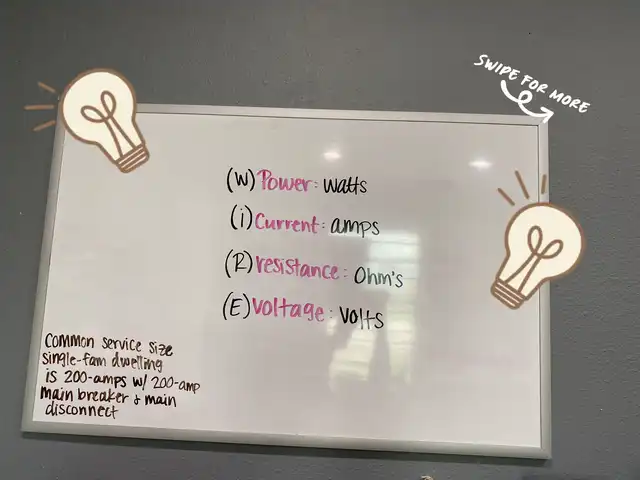 SWIPE FOR MORE
(W) Power: watts
(i) Current: amps
(R) resistance: Ohm's
(E) Voltage: Volts
Common service size
single-fam dwelling
is 200-amps w/ 200-amp
main breaker & main
disconnect